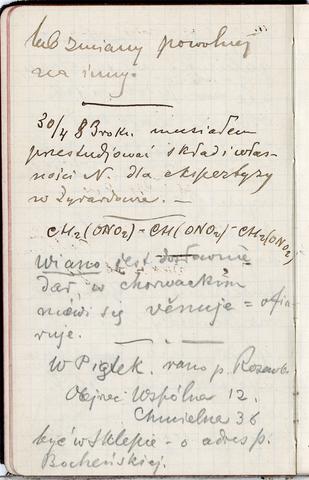 lub zmiany powolnej
na inny.
30/4 83 roku musiałem
przestudjować skład i włas-
ności N. dla ekspertyzy
w Żyrardowie. —
CH2(ONO2)-CH(ONO2)-CH2(ONO2)
Wiano jest dosłownie
dar, w chorwackim
mówi się věnuje = ofia-
ruje.
W Piątek. rano p.
Obejrzeć Wspólna 12.
Chmielna 36
być w Sklepie - o adres p.
Bocheńskiej.